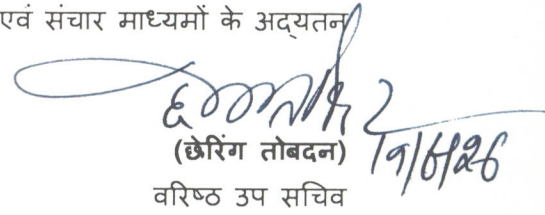 एवं संचार माध्यमों के अद्यतन
(छेरिंग तोबदन)
वरिष्ठ उप सचिव